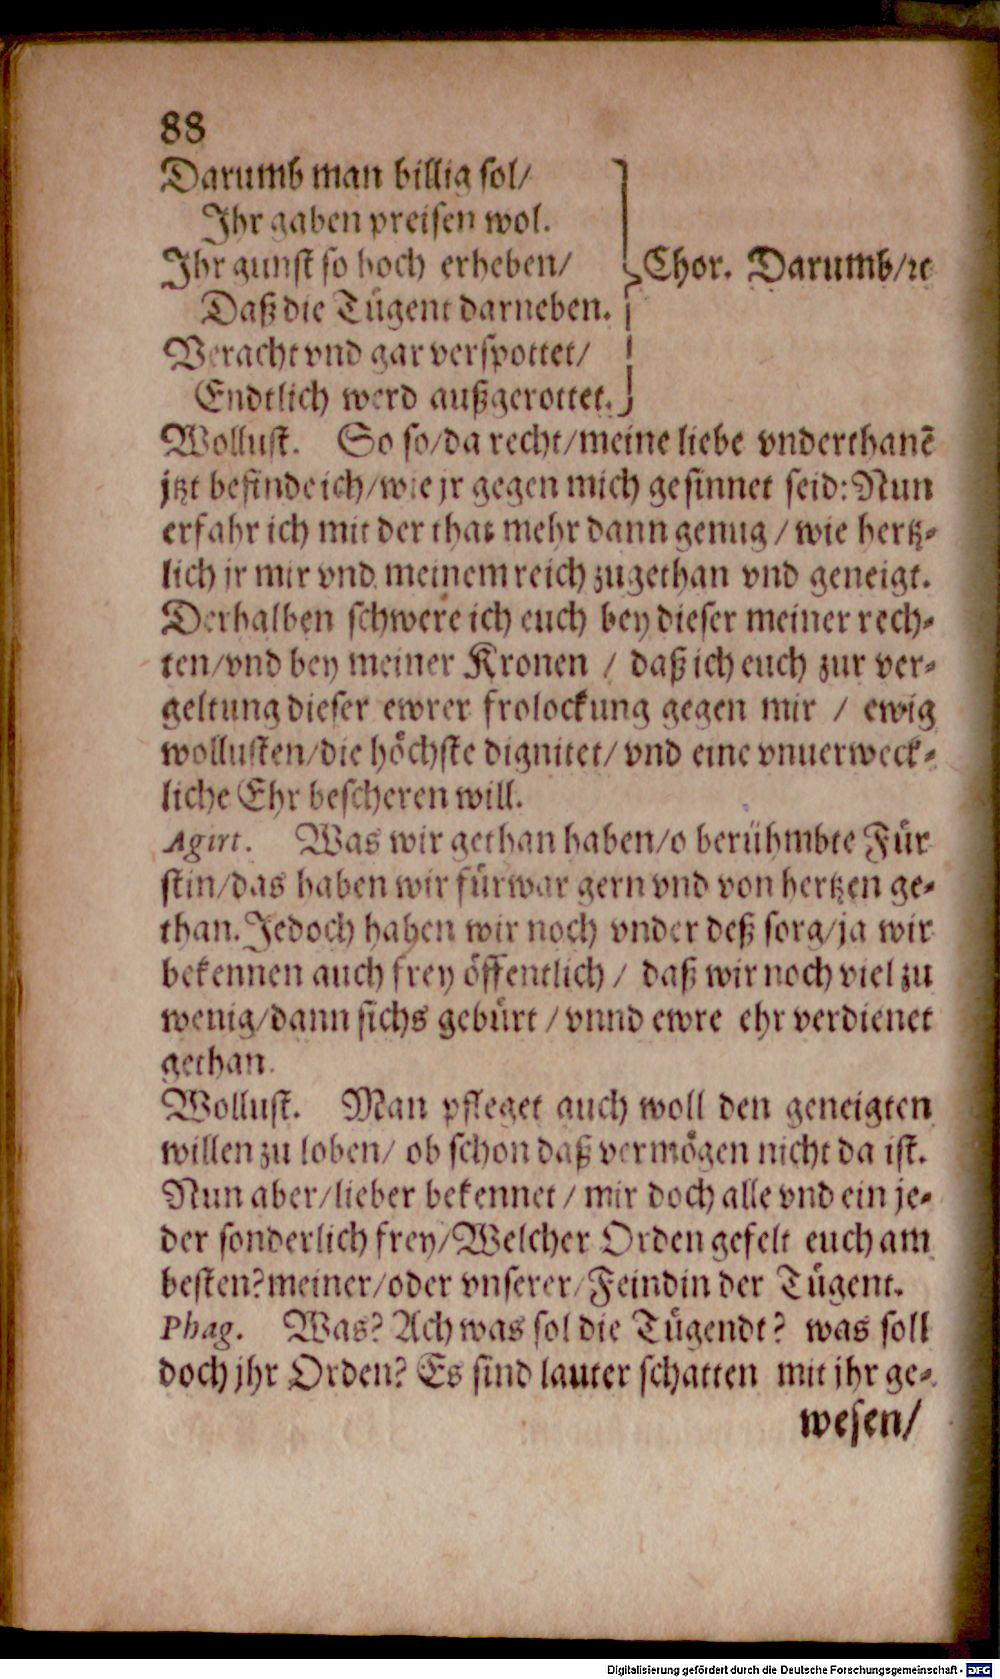 88
Darumb man billig sol/
Ihr gaben preisen wol.
Ihr gunst so hoch erheben/
Chor. Darumb/ꝛc
Daß die Tügent darneben.
Veracht vnd gar verspottet/
Endtlich werd außgerottet.
Wollust. So so/da recht/meine liebe vnderthanē
jtzt befinde ich/wie jr gegen mich gesinnet seid: Nun
erfahr ich mit der that mehr dann genug / wie hertz-
lich jr mir vnd meinem reich zugethan vnd geneigt.
Derhalben schwere ich euch bey dieser meiner rech-
ten/vnd bey meiner Kronen / daß ich euch zur ver-
geltung dieser ewrer frolockung gegen mir / ewig
wollusten/die höchste dignitet/ vnd eine vnuerweck-
liche Ehr bescheren will.
Agirt. Was wir gethan haben/o berühmbte Für
stin/das haben wir fürwar gern vnd von hertzen ge-
than. Jedoch haben wir noch vnder deß sorg/ja wir
bekennen auch frey öffentlich / daß wir noch viel zu
wenig/dann sichs gebürt / vnnd ewre ehr verdienet
gethan.
Wollust. Man pfleget auch woll den geneigten
willen zu loben/ ob schon daß vermögen nicht da ist.
Nun aber/lieber bekennet / mir doch alle vnd ein je-
der sonderlich frey/Welcher Orden gefelt euch am
besten? meiner/oder vnserer/Feindin der Tügent.
Phag. Was? Ach was sol die Tügendt? was soll
doch jhr Orden? Es sind lauter schatten mit jhr ge-
wesen/
Digitalisierung gefördert durch die Deutsche Forschungsgemeinschaft - DFG